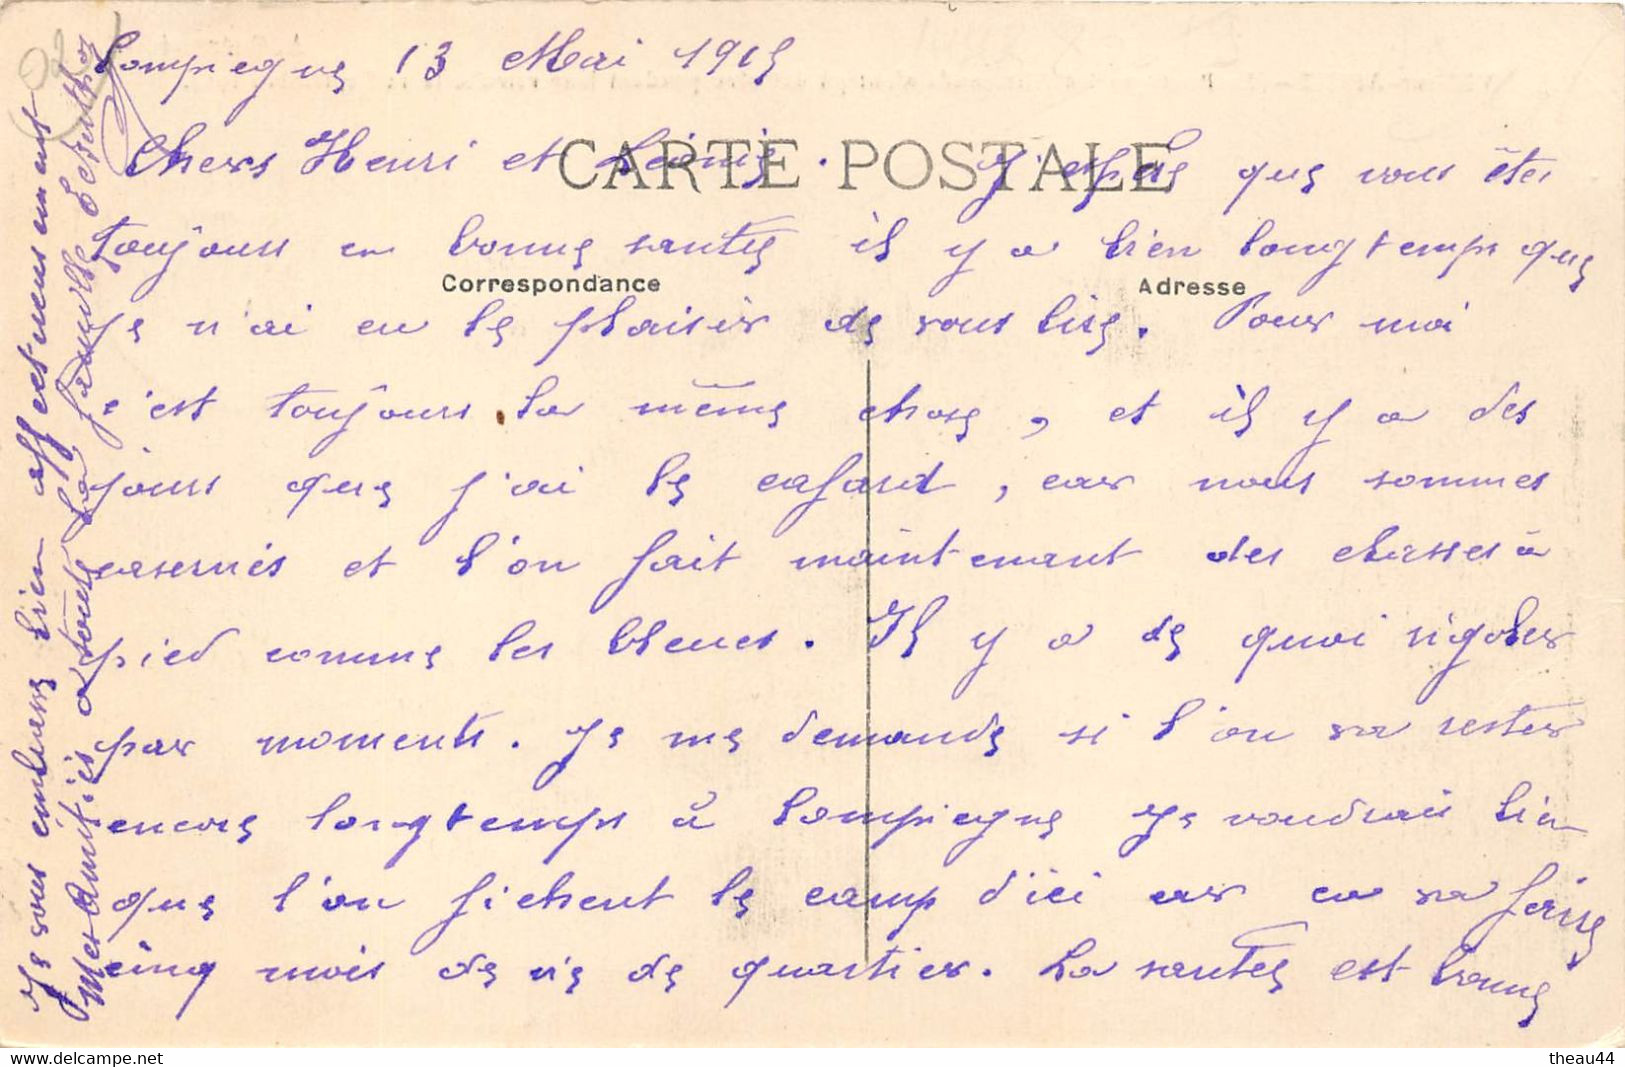 Compiegne 13 Mai 1915
CARTE POSTALE
Chers Henri et . J'espère que vous êtes
toujours en bonne santée il y a bien longtemps que
Correspondance Adresse
je n'ai eu le plaisir de vous lire. Pour moi
c'est toujours la même chose, et il y a des
jours que j'ai le cafard, car nous sommes
casernés et l'on fait maintenant des classes à
pied comme les bleues. Il y a de quoi rigoler
par moments. Je me demande si l'on va rester
encore longtemps à Compiegne je voudrais bien
que l'on fichent le camp d'ici car ca va faire
cinq mois de vie de quartier. La santée est bonne
Je vous embrasse bien affectueusement
Mes Amitiés a toute la famille
www.delcampe.net
theau44